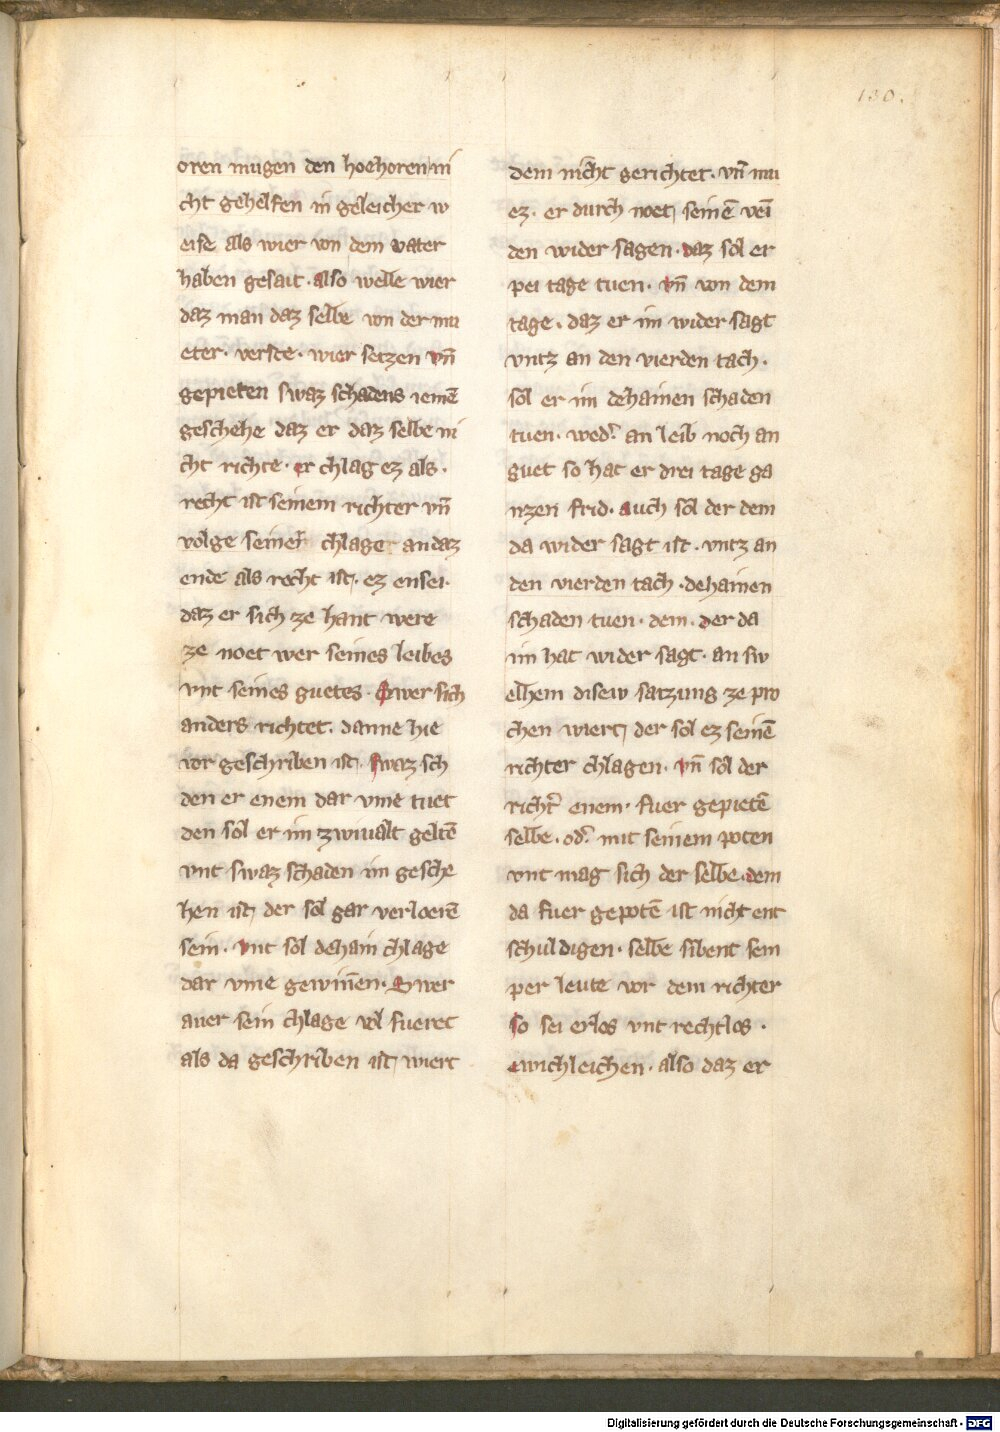 130.
oren mugen den hoehoren ni
cht gehelfen in geleicher w
eise als wier von dem vater
haben gesait. also welle wier
daz man daz selbe von der mu
eter. verste. wier setzen vn̄
gepieten swaz schadens iemē
geschehe daz er daz selbe ni
cht richte. er chlag ez als.
recht ist seinem richter vn̄
volge seiner chlage an daz
ende als recht ist. ez ensei.
daz er sich ze hant were
ze noet wer seines leibes
vnt seines guetes. Swer sich
anders richtet. danne hie
vor geschriben ist. Swaz sch
den er enem dar vme tuet
den sol er im zwiualt geltē
vnt swaz schaden im gesche
hen ist, der sol gar verloerē
sein. vnt sol dehain chlage
dar vme gewinēn. Swer
auer sein chlage vol fueret
als da geschriben ist, wiert
dem nicht gerichtet. vn̄ mu
ez. er durch noet, seinē vēi
den wider sagen. daz sol er
pei tage tuen. vn̄ von dem
tage. daz er im wider sagt
vntz an den vierden tach.
sol er im dehainen schaden
tuen. wed̾ an leib noch an
guet so hat er drei tage ga
nzen frid. auch sol der dem
da wider sagt ist. vntz an
den vierden tach. dehainen
schaden tuen. dem. der da
im hat wider sagt. an sw
elhem disew satzung ze pro
chen wiert, der sol ez seinē
richter chlagen. vn̄ sol der
richt̾ enem. fuer gepietē
selbe. od̾ mit seinem poten
vnt mag sich der selbe. dem
da fuer gepotē ist nicht ent
schuldigen. selbe sibent sem
per leute vor dem richter
so sei erlos vnt rechtlos.
ewichleichen. also daz er
Digitalisierung gefördert durch die Deutsche Forschungsgemeinschaft - DFG